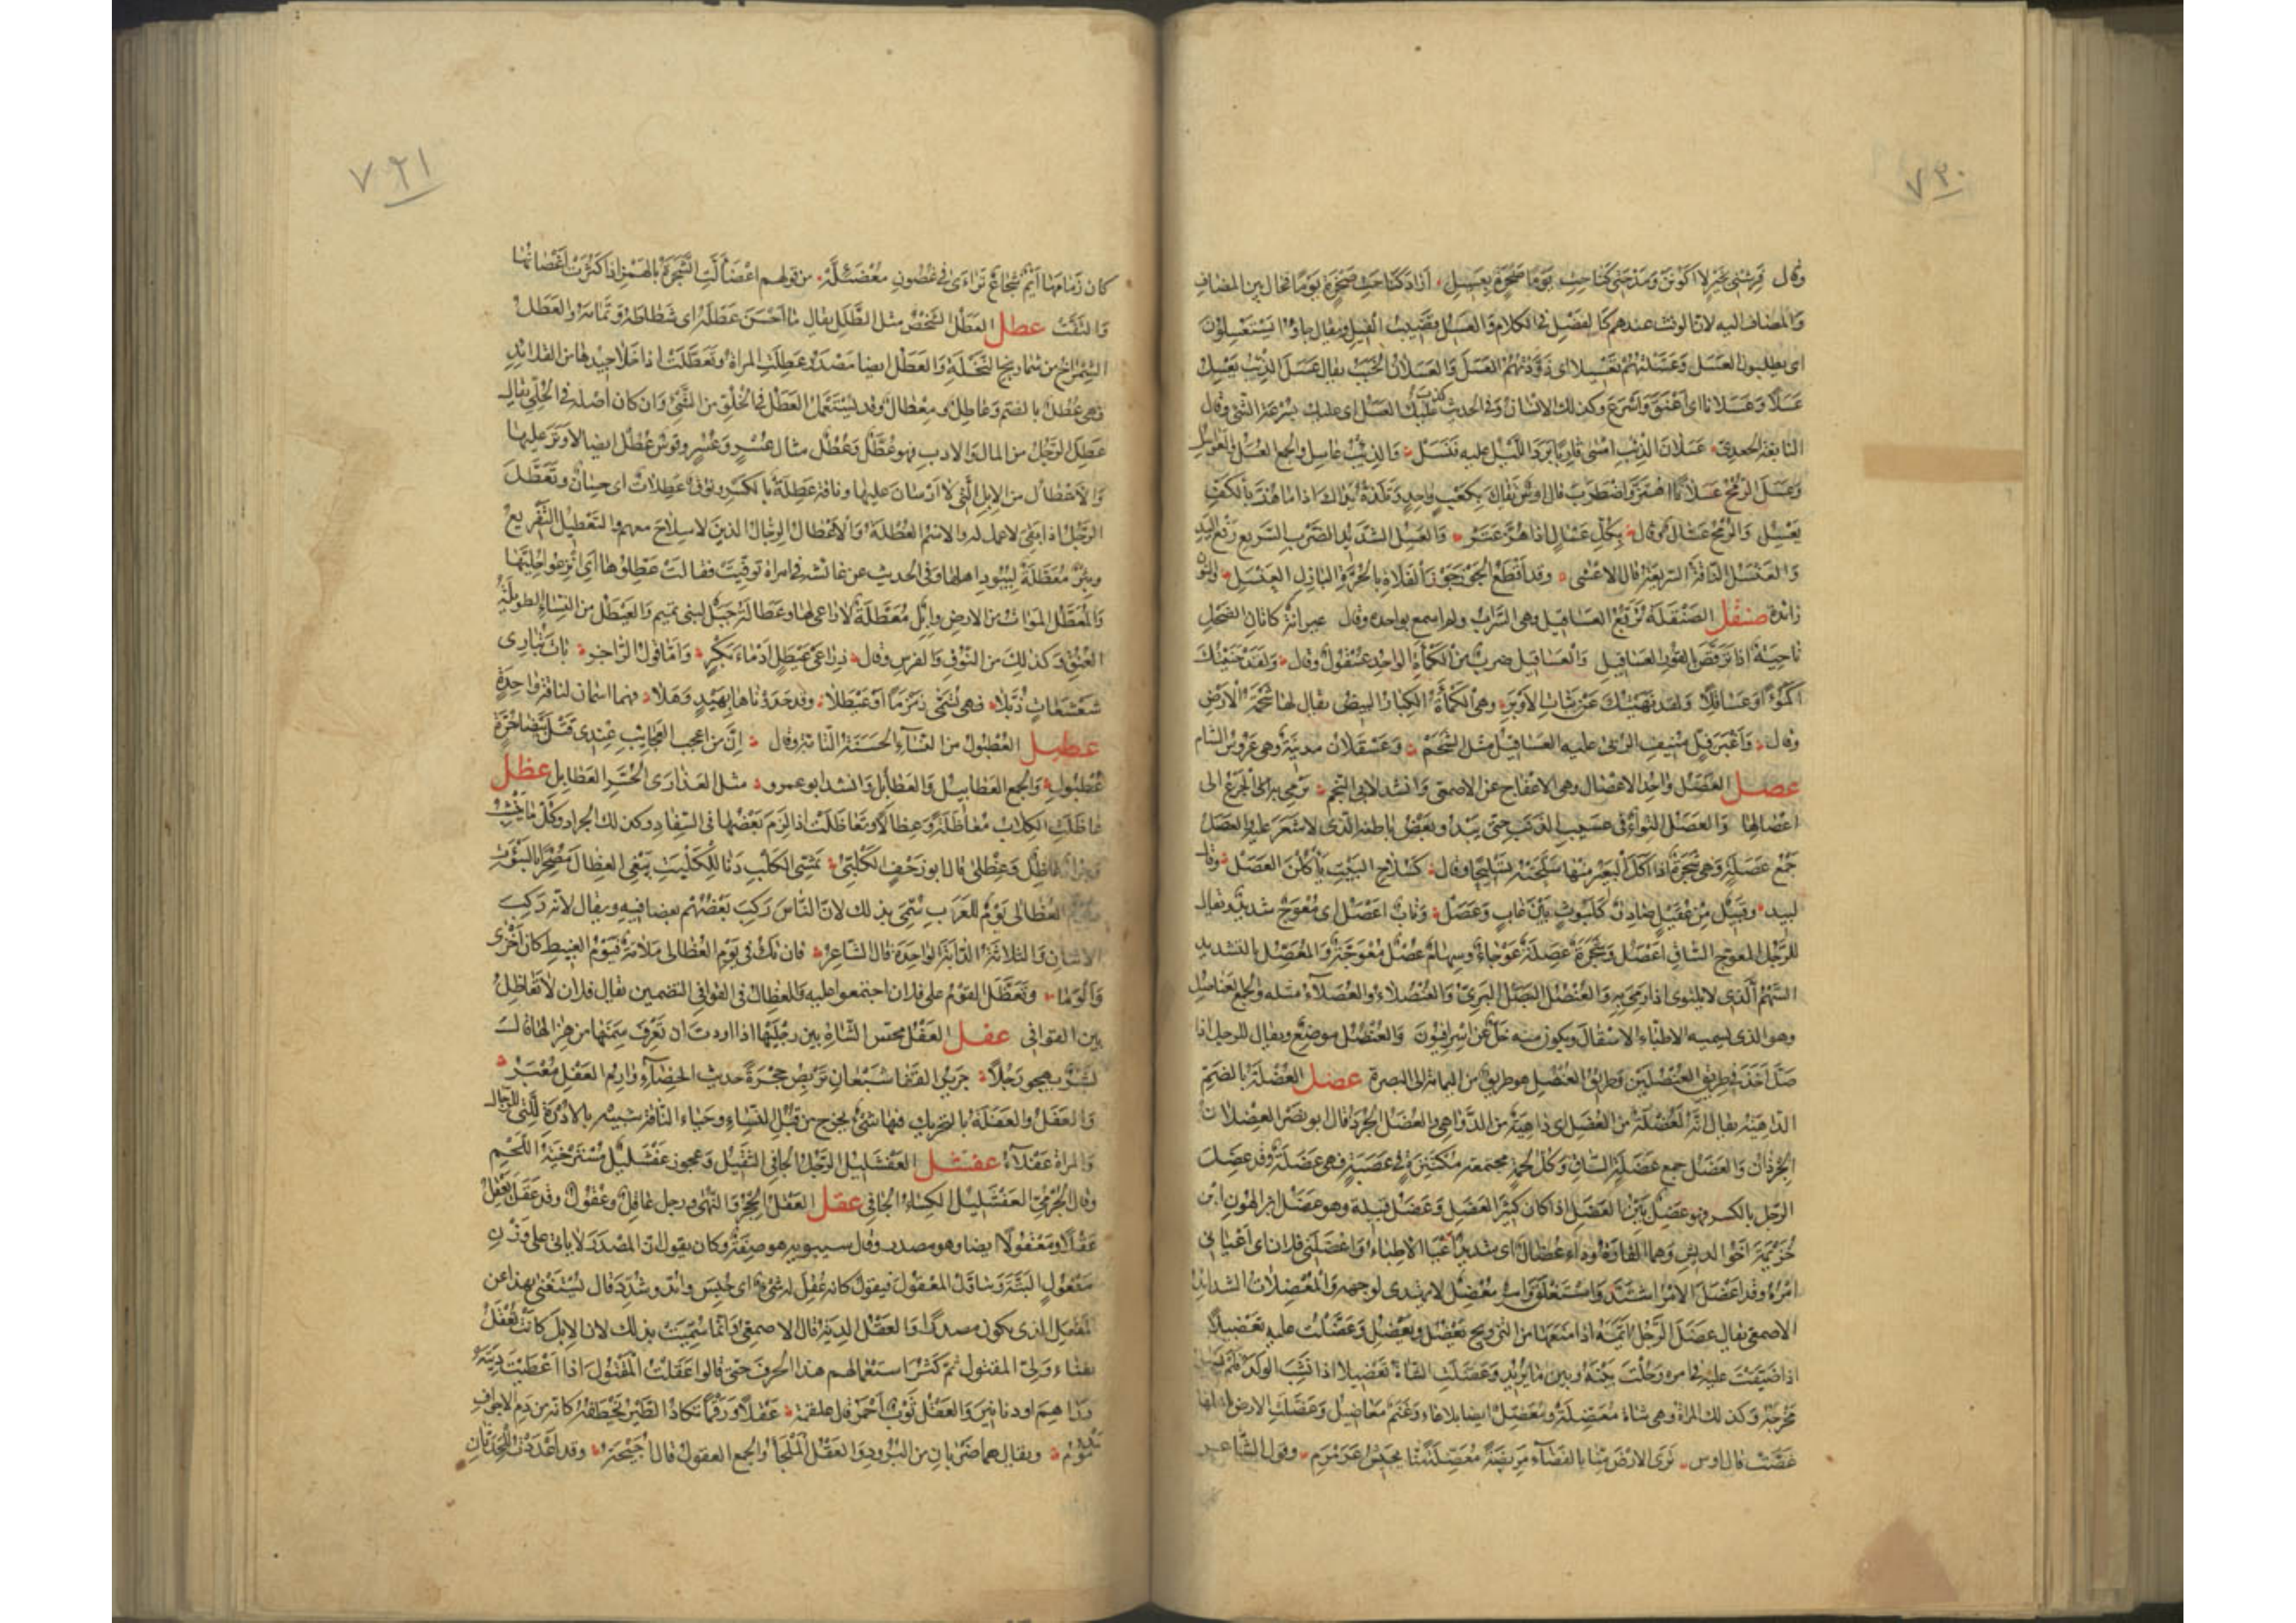 ٧٣٠
وقال فَرِشْني بخير لا اكونن ومدحتي كناحت يوما صخرة بعسيل اراد كناحت صخرة يوما فحال بين المضاف
والمضاف اليه لان الوقت عندهم كالفضل في الكلام والعسيل قضيب الفيل ويقال جاؤا يستعسلون
اى يطلبون العسل وعسلتهم تعسيلا اى زودتهم العسل والعسلان الخبب يقال عسل الذئب يعسل
عسلا وعسلانا اى اعنق واسرع وكذلك الانسان وفي الحديث كذب عليك العسل اى عليك بسرعة المشي وقال
النابغة الجعدى عسلان الذئب امسى قاربا برد الليل عليه فنسل والذئب عاسل والجمع العسل والعواسل
وعسل الرمح عسلانا اهتز واضطرب قال اوس تقاك بكعب واحد وتلذه يداك اذا ما هز بالكف
يعسل والرمح عسال وقال بكل عسال اذا هز عتر والعسل الشديد الضرب السريع رفع اليد
والعنسل الناقة السريعة قال الاعشى وقد اقطع الجوز جوز الفلاة بالحرة البازل العنسل والنون
زائدة عسقل الصنقلة تريع العساقيل وهي السراب ولم اسمع بواحده وقال عيرانة كاتان الضحل
ناجية اذا ترقص بالقور العساقيل والعساقيل ضرب من الكمأة الواحد عسقول وقال ولقد جنيتك
اكمؤا وعساقلا ولقد نهيتك عن بنات الاوبر وهي الكمأة الكبار البيض يقال لها شحمة الارض
وقال واغبر فل منيف الربى عليه العساقيل مثل الشحم وعسقلان مدينة وهي عروس الشام
عصل العصل واحد الاعصال وهي الاعفاج عن الاصمعي وانشد لابي النجم يرمي به الجزع الى
اعصالها والعصل التواء في عسيب الذنب حتى يبدو بعض باطنه الذى لا شعر عليه والعصل
جمع عصلة وهي شجرة اذا اكل البعير منها سلحته تسليحا وقال كسلاح النيب ياكلن العصل وقال
لبيد وقبيل من عقيل صادق كليوث بين غاب وعصل وناب اعصل اى معوج شديد ويقال
للرجل المعوج الساق اعصل وشجرة عصلة عوجاء وسهام عصل معوجة والمعصل بالتشديد
السهم الذى لا يلتوى اذا رمي به والعنصل البصل البرى والعنصلاء والعنصلاء مثله والجمع العناصل
وهو الذى تسميه الاطباء الاسقال ويكون منه خل عن اسرافيون والعنصل موضع ويقال للرجل اذا
ضل اخذ في طريق العنصلين وطريق العنصل هو طريق من اليمامة الى البصرة عضل العضلة بالضم
الداهية يقال انه لعضلة من العضل اى داهية من الدواهي والعضل الجرذ قال ابو نصر العضلان
الجرذان والعضل جمع عضلة الساق وكل لحمة مجتمعة مكتنزة في عصبة فهي عضلة وقد عضل
الرجل بالكسر فهو عضل بين العضل اذا كان كثير العضل وعضل قبيلة وهو عضل ابن الهون ابن
خزيمة اخو الديش وهما القارة وداء عضال اى شديد اعيا الاطباء واعضلني فلان اى اعياني
امره وقد اعضل الامر اشتد واستغلق وامر معضل لا يهتدى لوجهه والمعضلات الشدائد
الاصمعي يقال عضل الرجل ايمه اذا منعها من التزويج يعضل ويعضل وعضلت عليه تعضيلا
اذا ضيقت عليه في امره وحلت بينه وبين ما يريد وعضلت الشاة تعضيلا اذا نشب الولد فلم يسهل
مخرجه وكذلك المراة وهي شاة معضلة ومعضل ايضا بلا هاء وغنم معاضيل وعضلت الارض باهلها
غصت قال اوس ترى الارض منا بالفضاء مريضة معضلة منا بجيش عرمرم وقول الشاعر
٧٣١
كان زمامها ايم شجاع تراءى في غصون معضئلة من قولهم اعضألت الشجرة بالهمز اذا كثرت اغصانها
والتفت عطل العطل الشخص مثل الطلل يقال ما احسن عطله اى شطاطه وتمامه والعطل
الشمراخ من شماريخ النخلة والعطل ايضا مصدر عطلت المراة وتعطلت اذا خلا جيدها من القلائد
فهي عطل بالضم وعاطل ومعطال وقد يستعمل العطل في الخلو من الشئ وان كان اصله في الحلي يقال
عطل الرجل من المال والادب فهو عطل وعطل مثال عسر وعسر وقوس عطل ايضا لا وتر عليها
والاعطال من الابل التي لا ارسان عليها وناقة عطلة بالكسر ونوق عطلات اى حسان وتعطل
الرجل اذا بقي لا عمل له والاسم العطلة والاعطال الرجال الذين لا سلاح معهم والتعطيل التفريغ
وبئر معطلة لبيود اهلها وفي الحديث عن عائشة في امراة توفيت فقالت عطلوها اى انزعوا حليها
والمعطل الموات من الارض وابل معطلة لا راعي لها وعطالة جبل لبني تميم والعيطل من النساء الطويلة
العنق وكذلك من النوق والفرس وقال ذراعي عيطل ادماء بكر واما قول الراجز بات يبارى
شعشعات ذبلا فهي تسمى زمزما او عيطلا وقد حدوناها بهيد وهلا فهما اسمان لناقة واحدة
عطبل العطبول من النساء الحسنة التامة وقال ان من اعجب العجائب عندى قتل بيضاء حرة
عطبول والجمع العطابيل والعطابل وانشد ابو عمرو مثل العذارى الحسر العطابل عظل
عاظلت الكلاب معاظلة وعظالا وتعاظلت اذا لزم بعضها في السفاد وكذلك الجراد وكل ما ينشب
وجراد عاظل وعظلى قال ابو زحف الكلبي تمشي الكلب دنا للكلبة يبغي العظال مصحرا بالسوءة
ويوم العظالى يوم للعرب سمي بذلك لان الناس ركب بعضهم بعضا فيه ويقال لانه ركب
الاثنان والثلاثة الدابة الواحدة قال الشاعر فان تك في يوم العظالى ملامة فيوم الغبيط كان اخزى
والوما وتعظل القوم على فلان اجتمعوا عليه والعظال في القوافي التضمين يقال فلان لا يعاظل
بين القوافي عفل العفل مجس الشاة بين رجليها اذا اردت ان تعرف سمنها من هزالها قال
بشر يهجو رجلا جزيز القفا شبعان يربض حجرة حديث الخصاء وارم العفل معبر
والعفل والعفلة بالتحريك فيهما شئ يخرج من قبل النساء وحياء الناقة شبيه بالادرة التي للرجال
والمراة عفلاء عفشل العفشليل الرجل الجافي الثقيل وعجوز عفشليل مسترخية اللحم
وقال الجرمي العفشليل الكساء الجافي عقل العقل الحجر والنهى ورجل عاقل وعقول وقد عقل يعقل
عقلا ومعقولا ايضا وهو مصدر وقال سيبويه هو صفة وكان يقول ان المصدر لا ياتي على وزن
مفعول البتة ويتاول المعقول فيقول كانه عقل له شئ اى حبس وايد وشدد قال يستغنى بهذا عن
المفعل الذى يكون مصدرا والعقل الدية قال الاصمعي وانما سميت بذلك لان الابل كانت تعقل
بفناء ولي المقتول ثم كثر استعمالهم هذا الحرف حتى قالوا عقلت المقتول اذا اعطيت ديته
دراهم او دنانير والعقل ثوب احمر قال علقمة عقلا ورقما تكاد الطير تخطفه كانه من دم الاجواف
مدموم ويقال هما ضربان من البرود والعقل الملجأ والجمع العقول قال احيحة وقد اعددت للحدثان